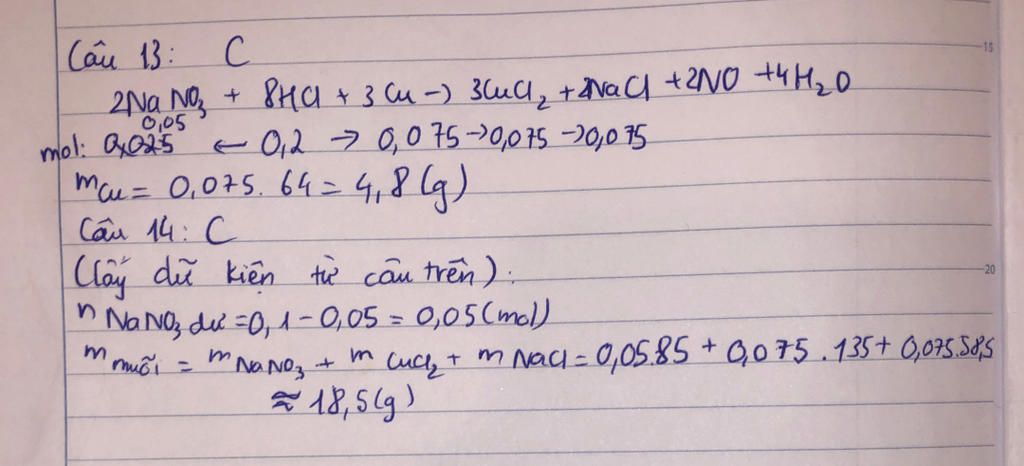 Câu 13: C
2NaNO3 + 8HCl + 3Cu -> 3CuCl2 + 2NaCl + 2NO + 4H2O
0,05
mol: 0,025 ← 0,2 → 0,075 → 0,075 → 0,075
mCu = 0,075. 64 = 4,8 (g)
Câu 14: C
(lấy dữ kiện từ câu trên).
n NaNO3 dư = 0,1 - 0,05 = 0,05 (mol)
m muối = m NaNO3 + m CuCl2 + m NaCl = 0,05.85 + 0,075 . 135 + 0,075.58,5
≈ 18,5 (g)
15
20